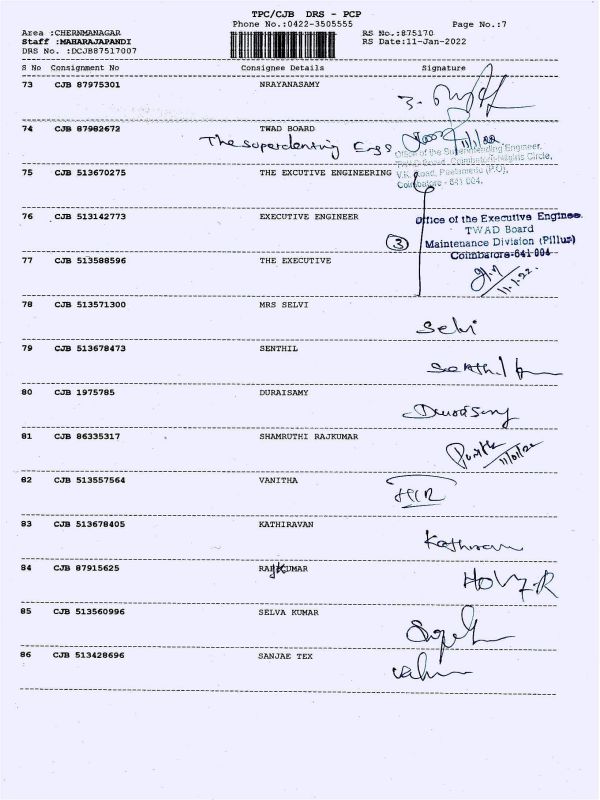 TPC/CJB DRS - PCP
Phone No.:0422-3505555 Page No.:7
Area :CHERNMANAGAR RS No.:875170
Staff :MAHARAJAPANDI RS Date:11-Jan-2022
DRS No. :DCJB87517007
S No Consignment No Consignee Details Signature
73 CJB 87975301 NRAYANASAMY
74 CJB 87982672 TWAD BOARD
The superdenting Engs 11/1/22
Office of the Superintending Engineer,
TWAD Board, Coimbatore Circle,
75 CJB 513670275 THE EXCUTIVE ENGINEERING V.K. Road, Peelamedu (P.O),
Coimbatore - 641 004.
76 CJB 513142773 EXECUTIVE ENGINEER Office of the Executive Enginee
TWAD Board
3 Maintenance Division (Pillur)
Coimbatore-641 004
77 CJB 513588596 THE EXECUTIVE
11.1.22.
78 CJB 513571300 MRS SELVI
Selvi
79 CJB 513678473 SENTHIL
Senthil
80 CJB 1975785 DURAISAMY
Duraisamy
81 CJB 86335317 SHAMRUTHI RAJKUMAR
11/01/22
82 CJB 513557564 VANITHA
83 CJB 513678405 KATHIRAVAN
Kathiravan
84 CJB 87915625 RAJKUMAR
85 CJB 513560996 SELVA KUMAR
86 CJB 513428696 SANJAE TEX